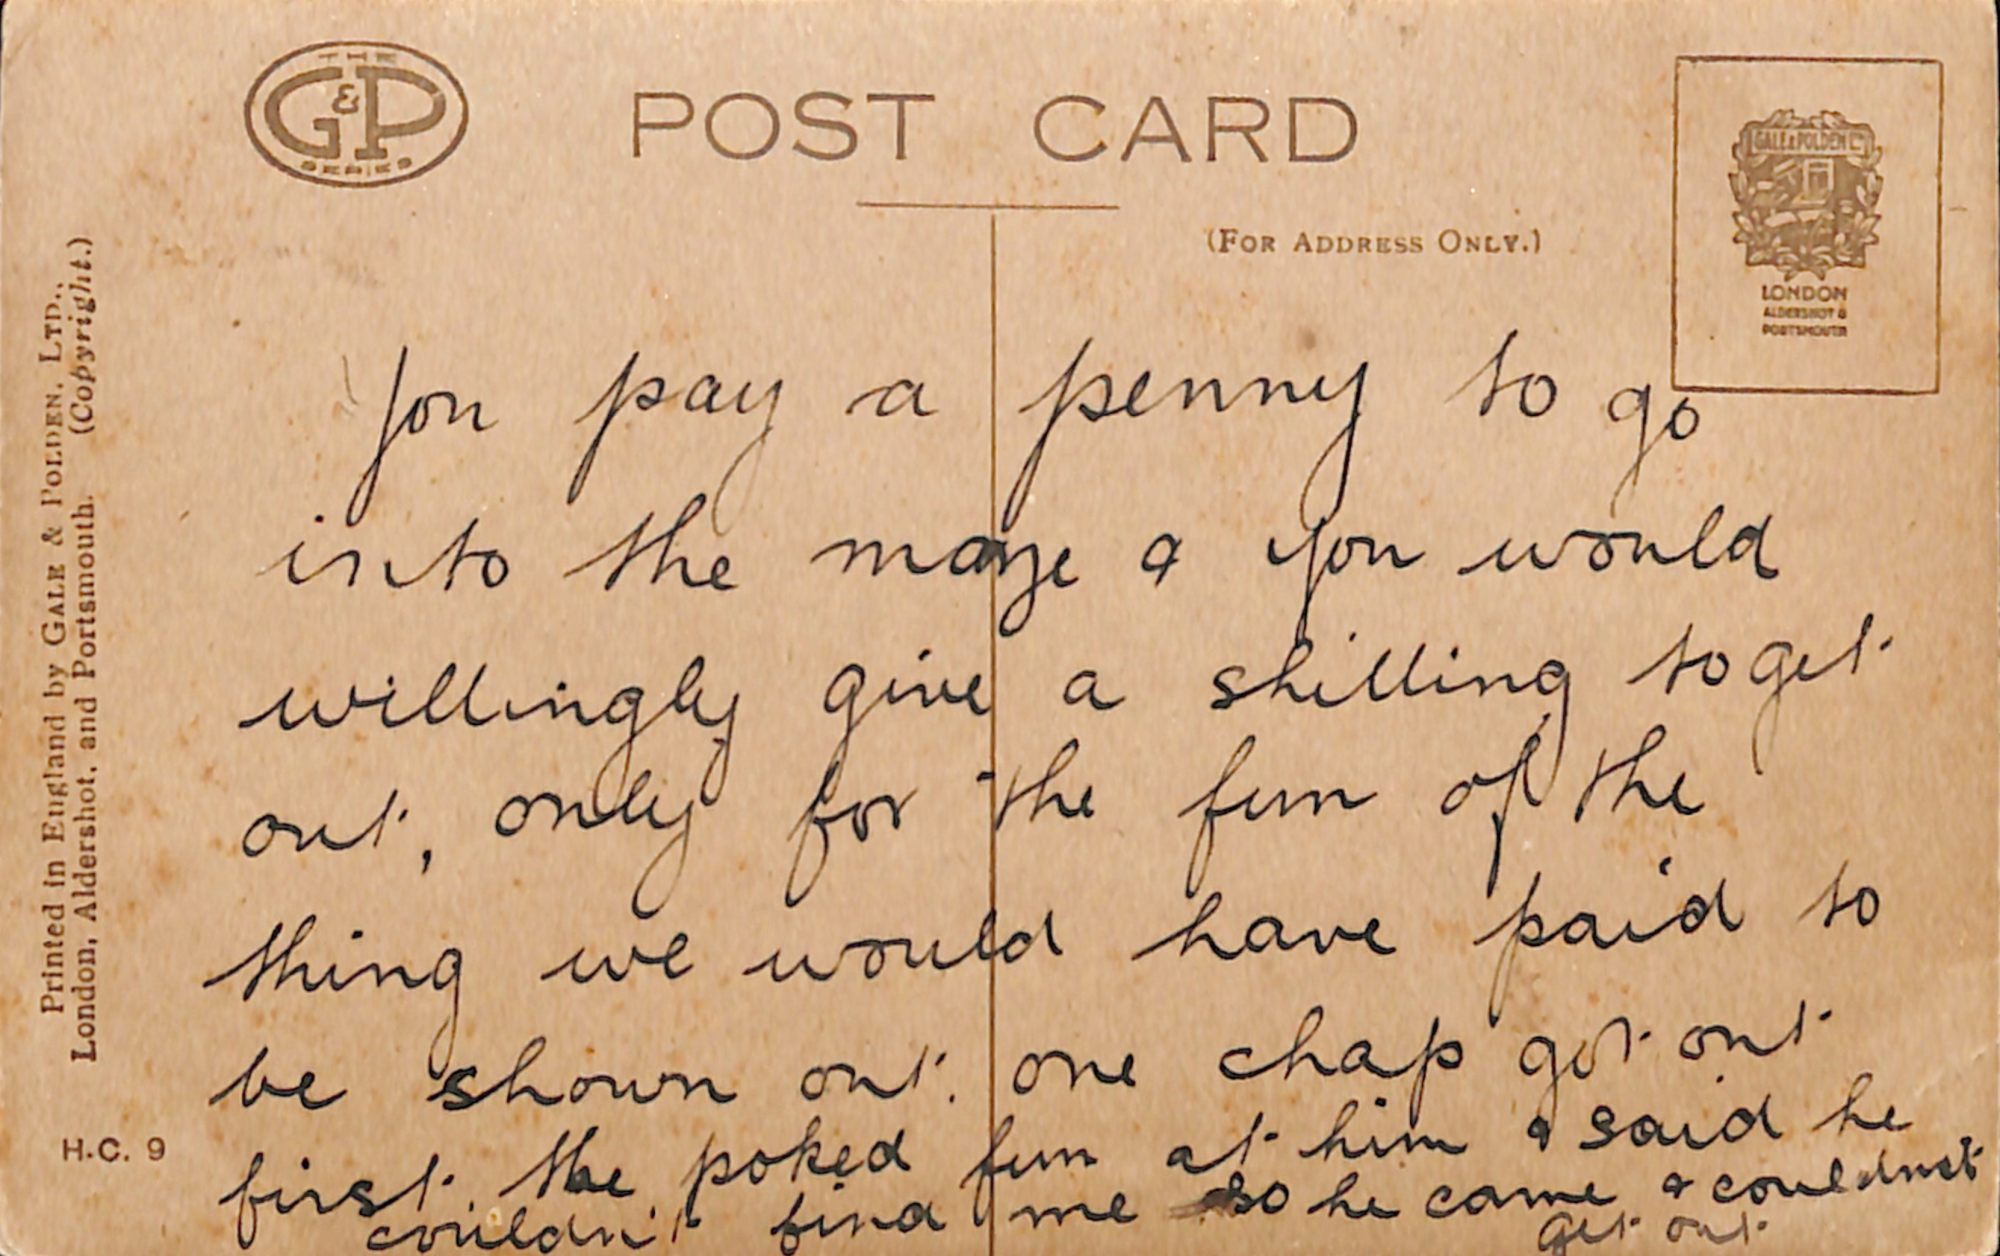 THE
G&P
SERIES
POST CARD
(FOR ADDRESS ONLY.)
GALE & POLDEN LTD
LONDON
ALDERSHOT &
PORTSMOUTH
Printed in England by GALE & POLDEN, LTD.,
London, Aldershot, and Portsmouth. (Copyright.)
H.C. 9
You pay a penny to go
into the maze & you would
willingly give a shilling to get
out, only for the fun of the
thing we would have paid to
be shown out. one chap got out
first. the poked fun at him & said he
couldn't find me so he came & couldnt
get out